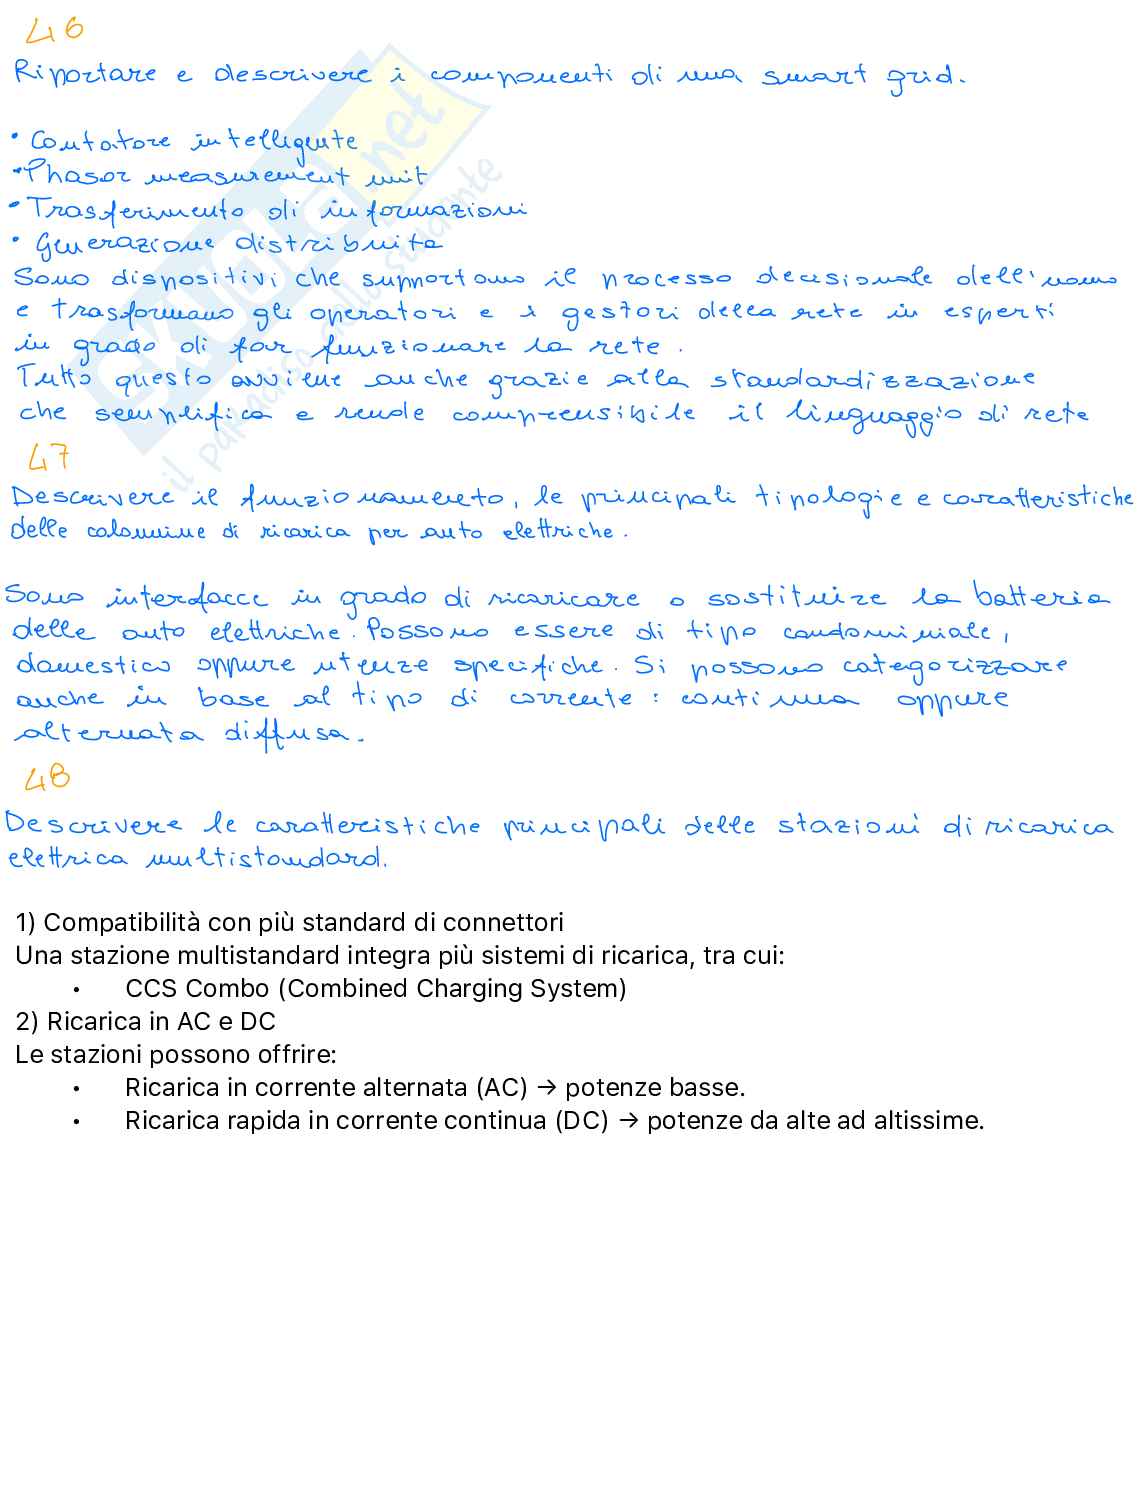 46
Riportare e descrivere i componenti di una smart grid.
• Contatore intelligente
• Phasor measurement unit
• Trasferimento di informazioni
• Generazione distribuita
Sono dispositivi che supportano il processo decisionale dell'uomo
e trasformano gli operatori e i gestori della rete in esperti
in grado di far funzionare la rete.
Tutto questo avviene anche grazie alla standardizzazione
che semplifica e rende comprensibile il linguaggio di rete
47
Descrivere il funzionamento, le principali tipologie e caratteristiche
delle colonnine di ricarica per auto elettriche.
Sono interfacce in grado di ricaricare o sostituire la batteria
delle auto elettriche. Possono essere di tipo condominiale,
domestico oppure utenze specifiche. Si possono categorizzare
anche in base al tipo di corrente: continua oppure
alternata diffusa.
48
Descrivere le caratteristiche principali delle stazioni di ricarica
elettrica multistandard.
1) Compatibilità con più standard di connettori
Una stazione multistandard integra più sistemi di ricarica, tra cui:
• CCS Combo (Combined Charging System)
2) Ricarica in AC e DC
Le stazioni possono offrire:
• Ricarica in corrente alternata (AC) → potenze basse.
• Ricarica rapida in corrente continua (DC) → potenze da alte ad altissime.
SKUOLA.net
il paradiso dello studente